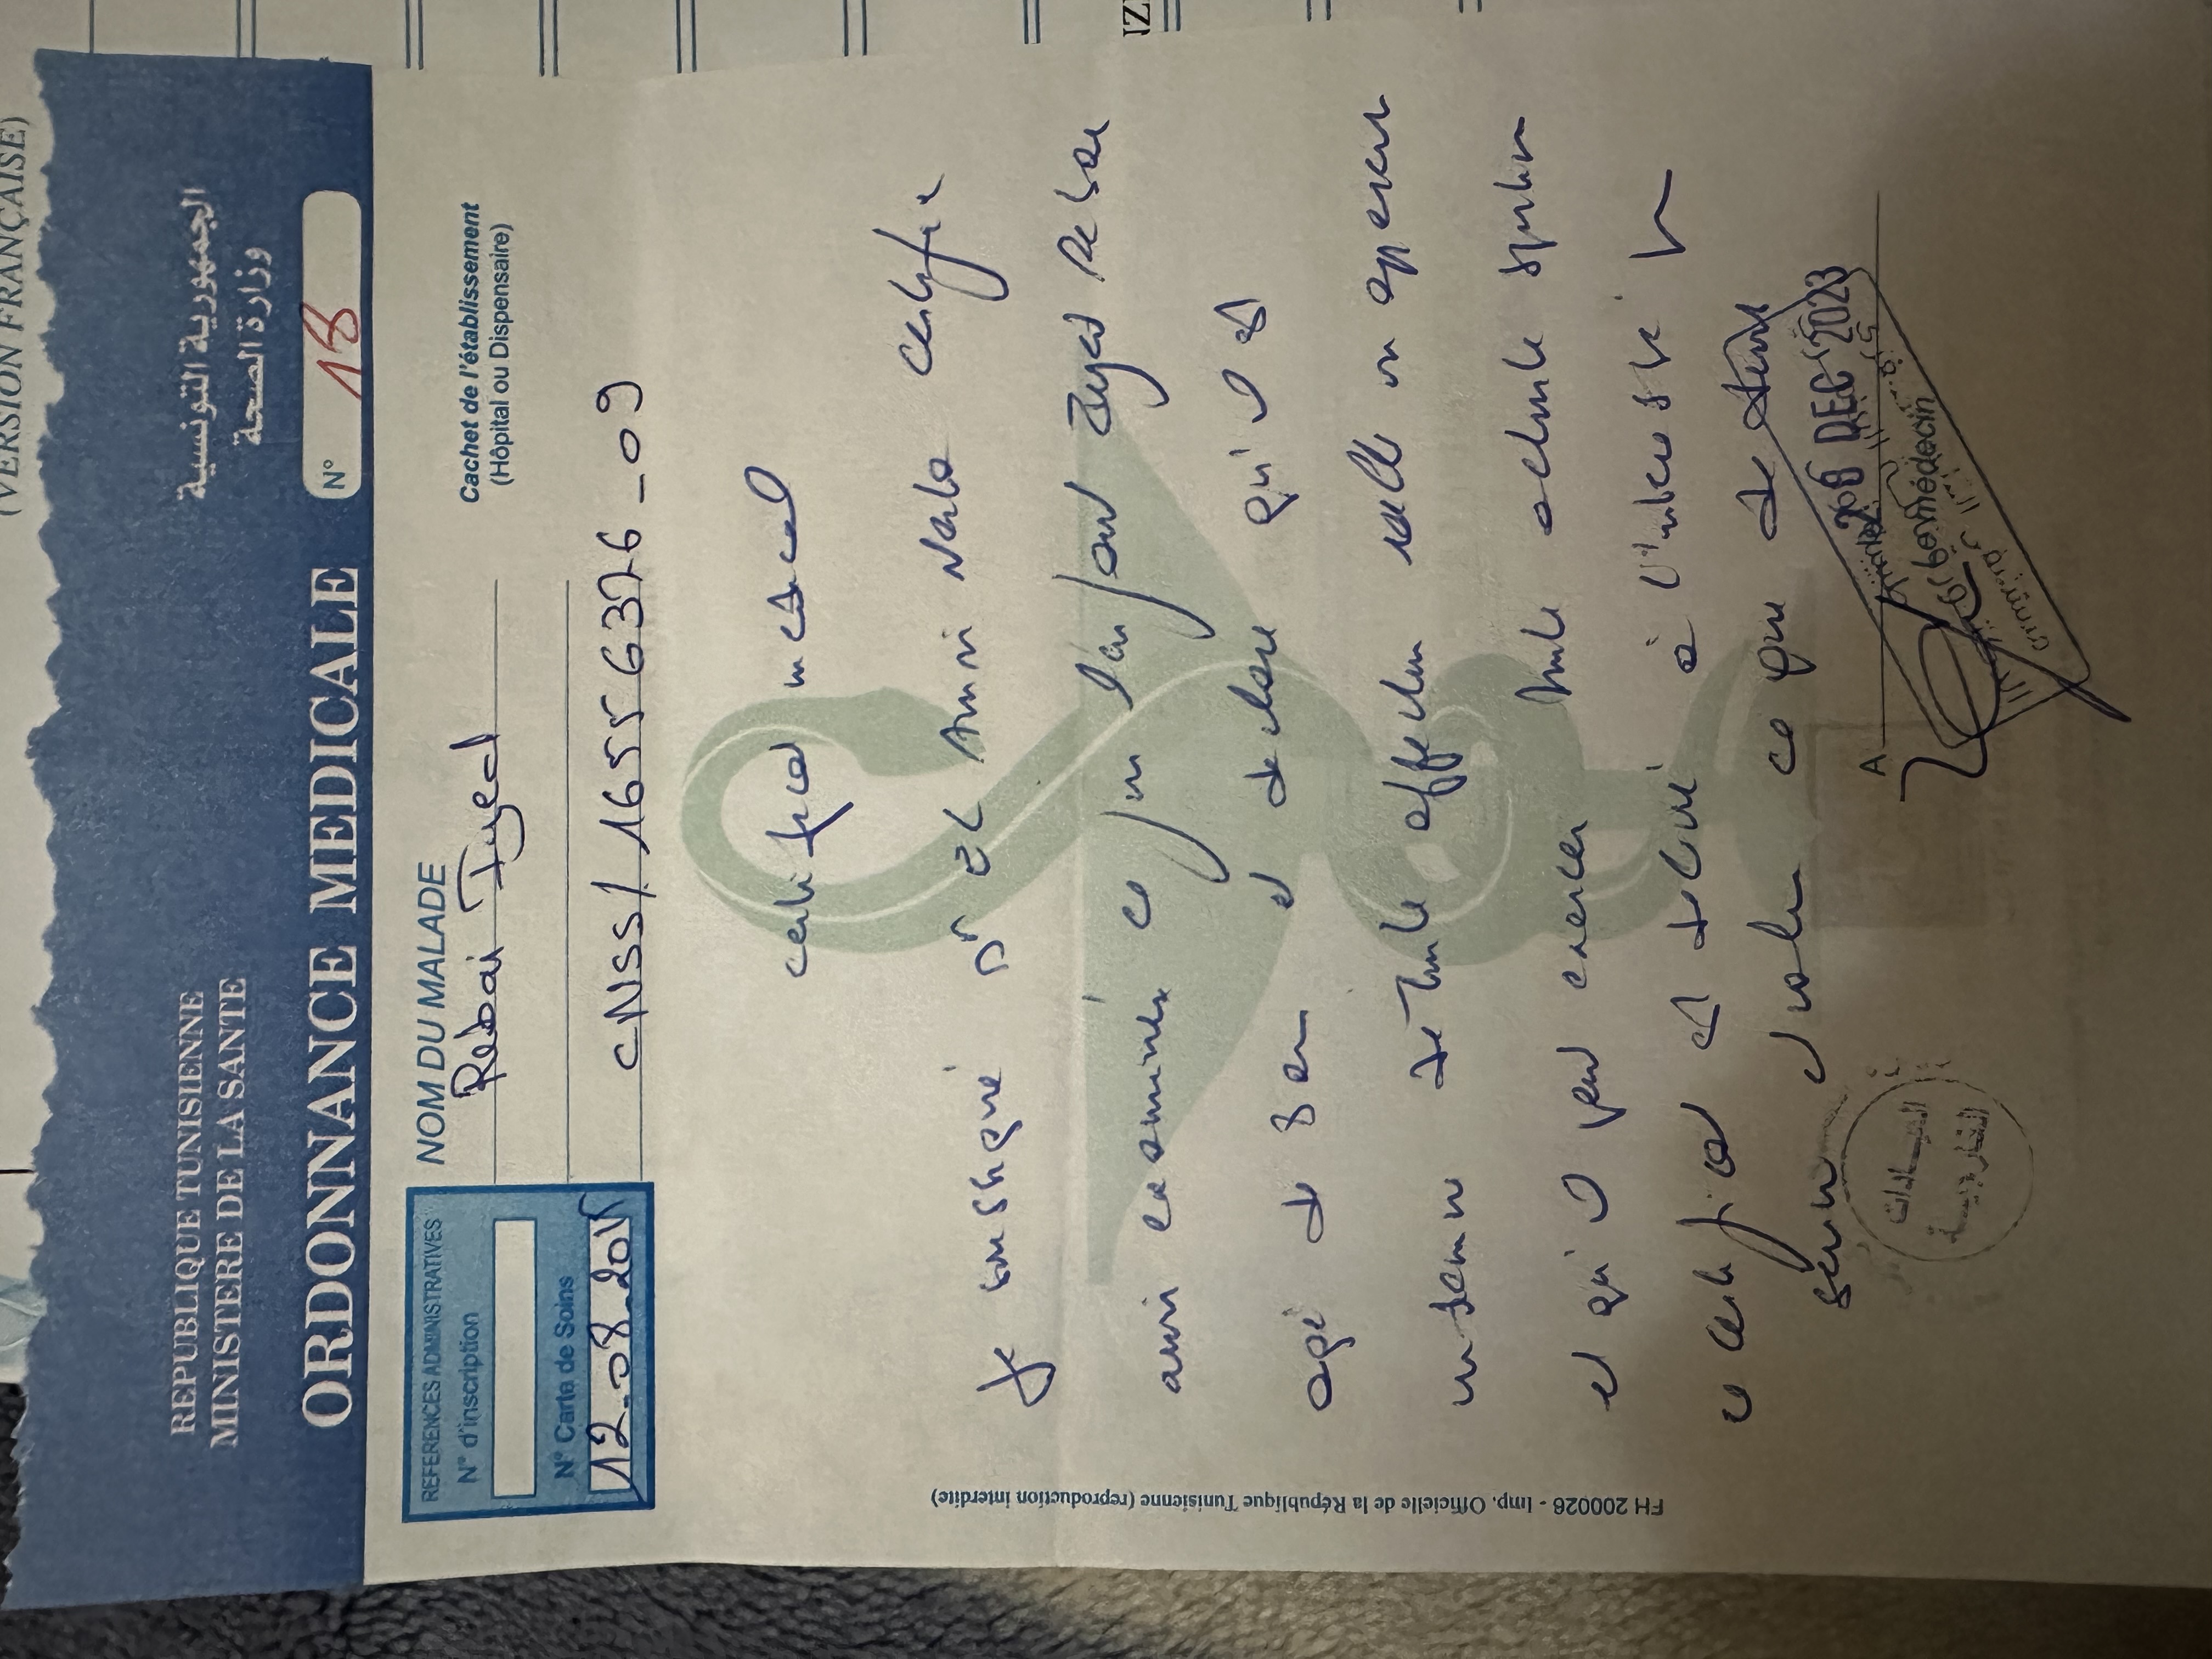 (VERSION FRANÇAISE)
REPUBLIQUE TUNISIENNE
MINISTERE DE LA SANTE
الجمهورية التونسية
وزارة الصحة
ORDONNANCE MEDICALE
N° 18
REFERENCES ADMINISTRATIVES
N° d'inscription
N° Carta de Soins
12-08-2015
NOM DU MALADE
Rebai Zyed
CNSS/16556376-09
Cachet de l'établissement
(Hôpital ou Dispensaire)
certificat medical
Je soussigné Dr El Amri Nale certifie
avoir examiné ce jour l'enfant Zyed Rebai
agé de 8 an et declare qu'il est
indemne de toute affection
et qu'il peut exercer toute activité sportive
ce certificat est delivré à l'interessé
servir et valoir ce que de droit
A
26 DEC 2023
العيادات
الخارجية
FH 200026 - Imp. Officielle de la République Tunisienne (reproduction interdite)